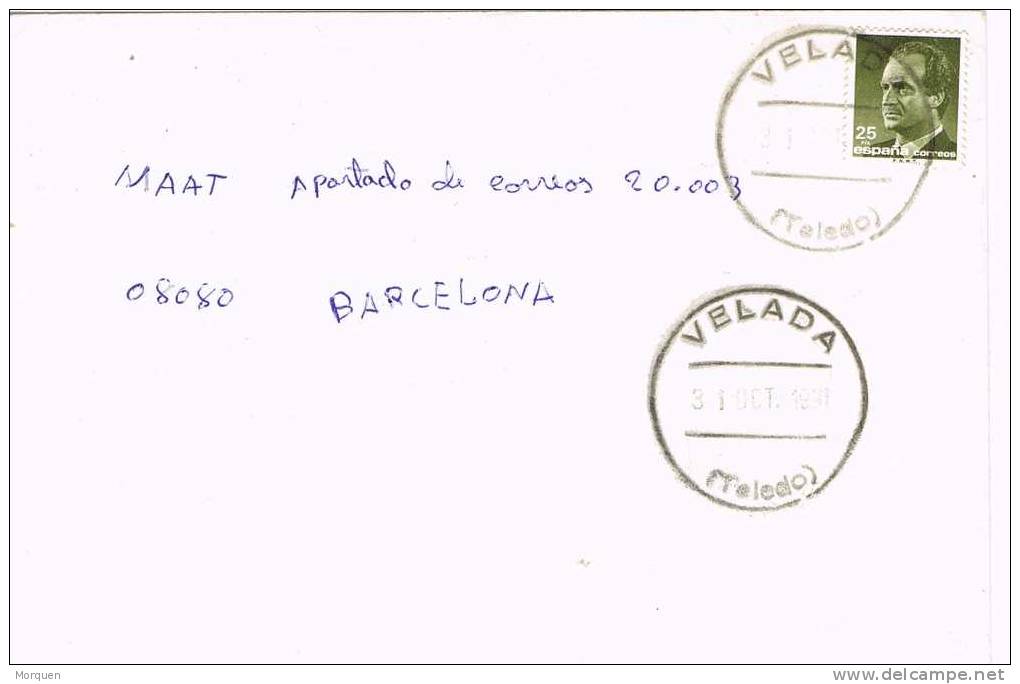 VELADA
25
PTA
españa correos
(Toledo)
MAAT Apartado de correos 20.003
08080 BARCELONA
VELADA
31 OCT. 1991
(Toledo)
Morquen
delcampe.net